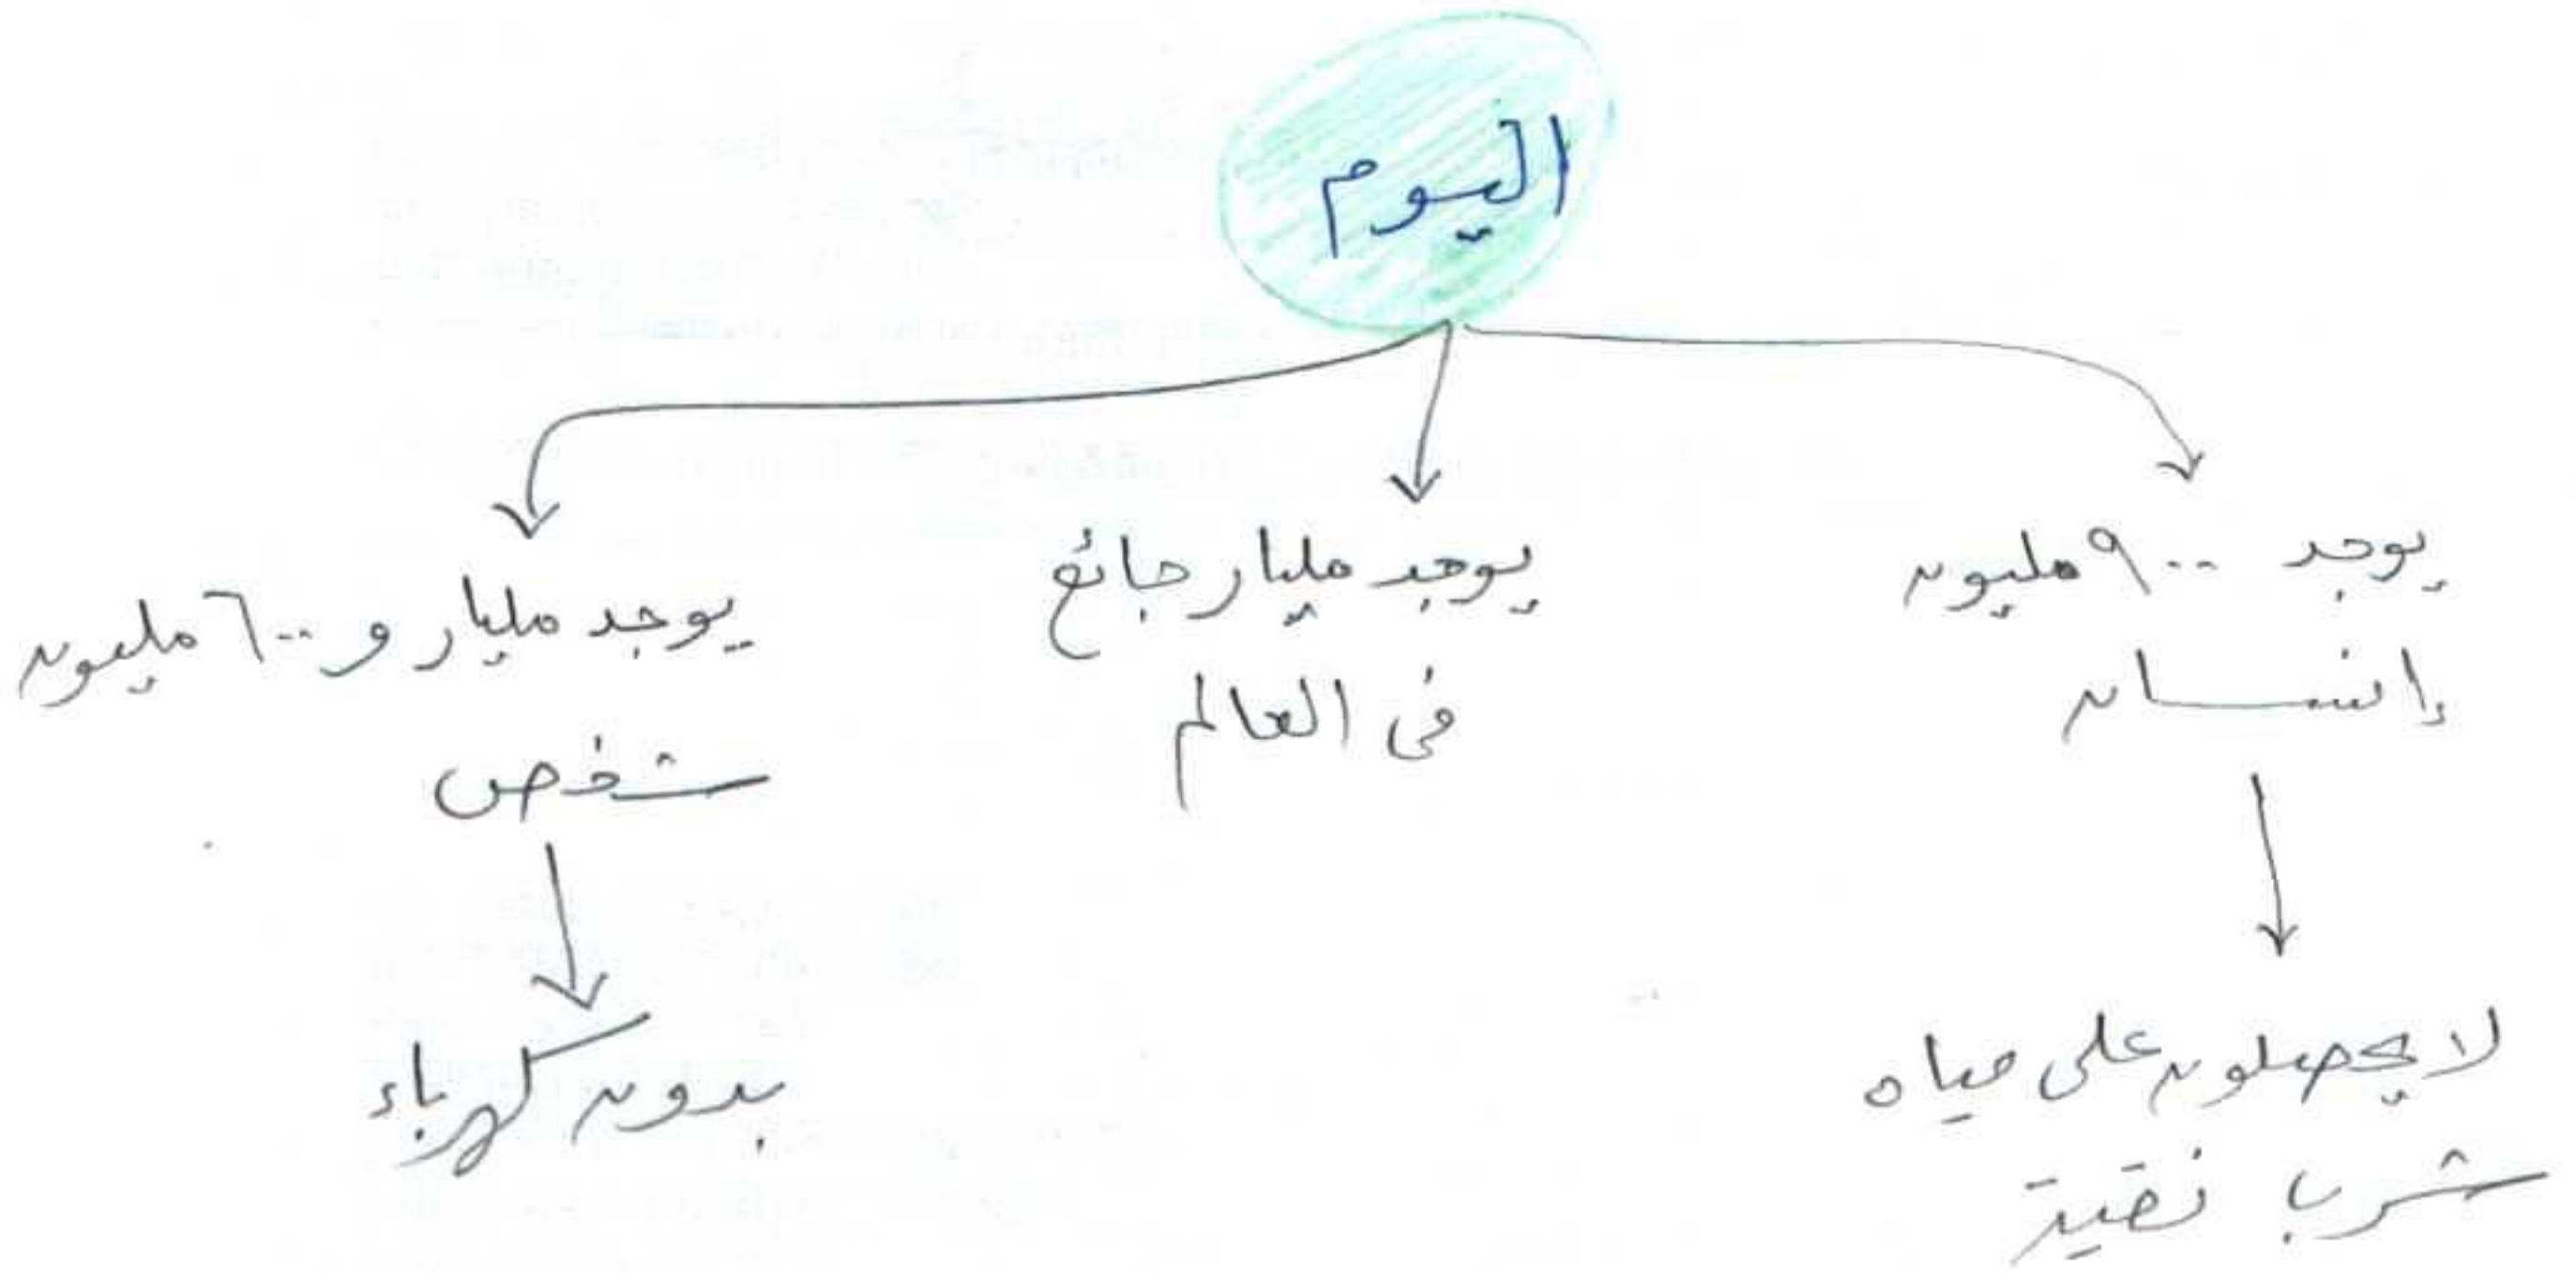 اليوم
يوجد ٩٠٠ مليون
إنسان
لا يحصلون على مياه
شرب نقية
يوجد مليار جائع
فى العالم
يوجد مليار و ٦٠٠ مليون
شخص
بدون كهرباء